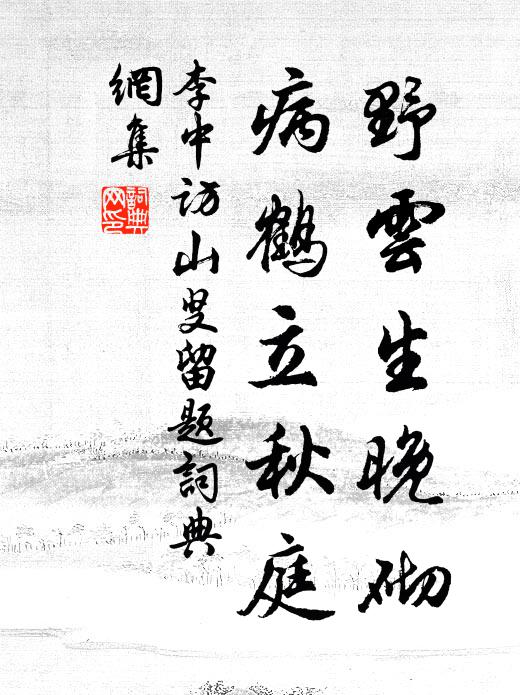 野雲生晚砌
病鶴立秋庭
李中訪山叟留題詞典
網集
詞典
网印